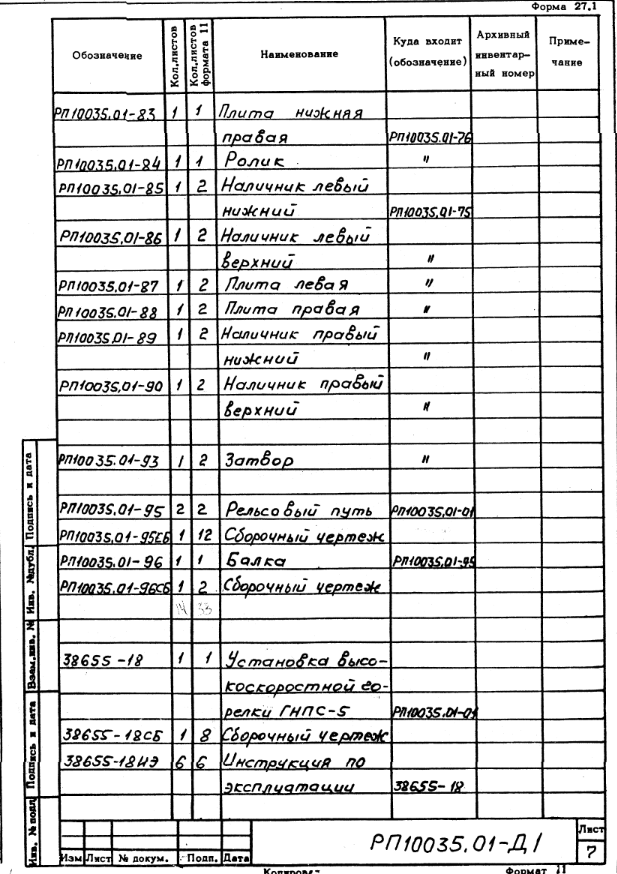 Форма 27.1
Обозначение Кол.листов Кол.листов формата 11 Наименование Куда входит (обозначение) Архивный инвентарный номер Примечание
РП10035.01-83 1 1 Плита нижняя
правая РП10035.01-76
РП10035.01-84 1 1 Ролик "
РП10035.01-85 1 2 Наличник левый
нижний РП10035.01-75
РП10035.01-86 1 2 Наличник левый
верхний "
РП10035.01-87 1 2 Плита левая "
РП10035.01-88 1 2 Плита правая "
РП10035.01-89 1 2 Наличник правый
нижний "
РП10035.01-90 1 2 Наличник правый
верхний "
РП10035.01-93 1 2 Затвор "
РП10035.01-95 2 2 Рельсовый путь РП10035.01-01
РП10035.01-95СБ 1 12 Сборочный чертеж
РП10035.01-96 1 1 Балка РП10035.01-95
РП10035.01-96СБ 1 2 Сборочный чертеж
14 33
38655-18 1 1 Установка высо-
коскоростной го-
релки ГНПС-5 РП10035.01-01
38655-18СБ 1 8 Сборочный чертеж
38655-18ИЭ 6 6 Инструкция по
эксплуатации 38655-18
Подпись и дата
Инв. №дубл.
Взам.инв. №
Подпись и дата
Инв. № подл
Изм Лист № докум. Подп. Дата
РП10035.01-Д1
Лист
7
Копировал
Формат 11